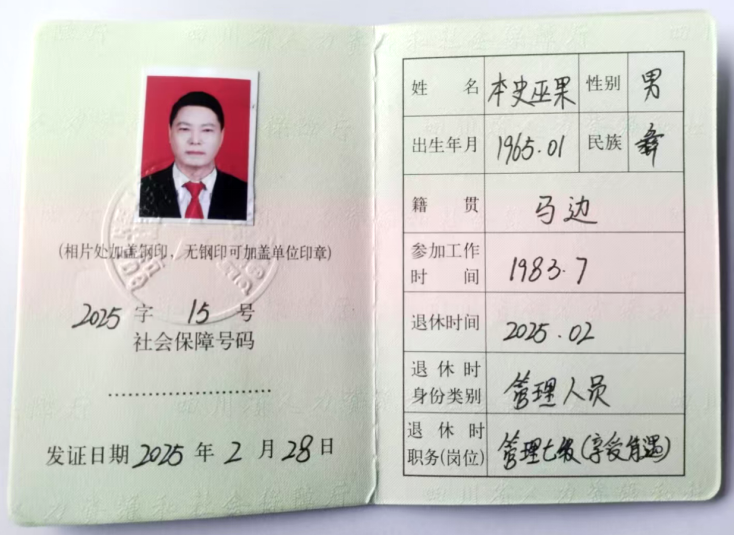 (相片处加盖钢印，无钢印可加盖单位印章)
2025 字 15 号
社会保障号码
发证日期 2025 年 2 月 28 日
姓名 本史巫果 性别 男
出生年月 1965.01 民族 彝
籍贯 马边
参加工作
时间 1983.7
退休时间 2025.02
退休时
身份类别 管理人员
退休时
职务(岗位) 管理七级(享受待遇)